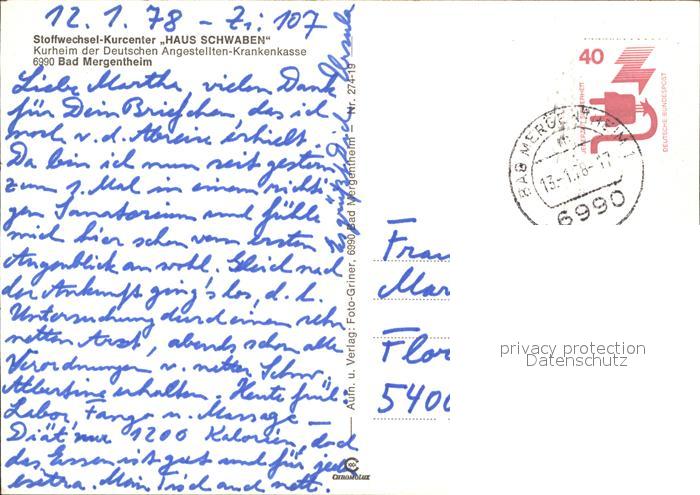 12.1.78 - Zi: 107
Stoffwechsel-Kurcenter „HAUS SCHWABEN"
Kurheim der Deutschen Angestellten-Krankenkasse
6990 Bad Mergentheim
Liebe Martha, vielen Dank
für Dein Briefchen, das ich
noch v. d. Abreise erhielt.
Da bin ich nun seit gestern
zum 1. Mal in einem richti
gen Sanatorium und fühle
mich hier schon vom ersten
Augenblick an wohl. Gleich nach
der Ankunft ging's los, d. h.
Untersuchung durch einen sehr
netten Arzt, abends schon alle
Verordnungen v. netter Schw.
Albertine erhalten. Heute früh
Labor, Fango u. Massage
Diät nur 1200 Kalorien, doch
das Essen ist gut und für jeden
extra. Mein Tisch auch nett.
Es grüßt Dich Ursula
Aufn. u. Verlag: Foto-Griner, 6990 Bad Mergentheim – Nr. 274-19
CHROMOLUX
40
DEUTSCHE BUNDESPOST
BAD MERGENTHEIM 1
13-1.78-17
6990
Frau
Mar
Flor
5400
privacy protection
Datenschutz